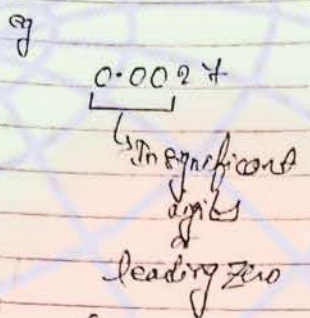 eg
0.0027
Insignificant
digits
leading zero